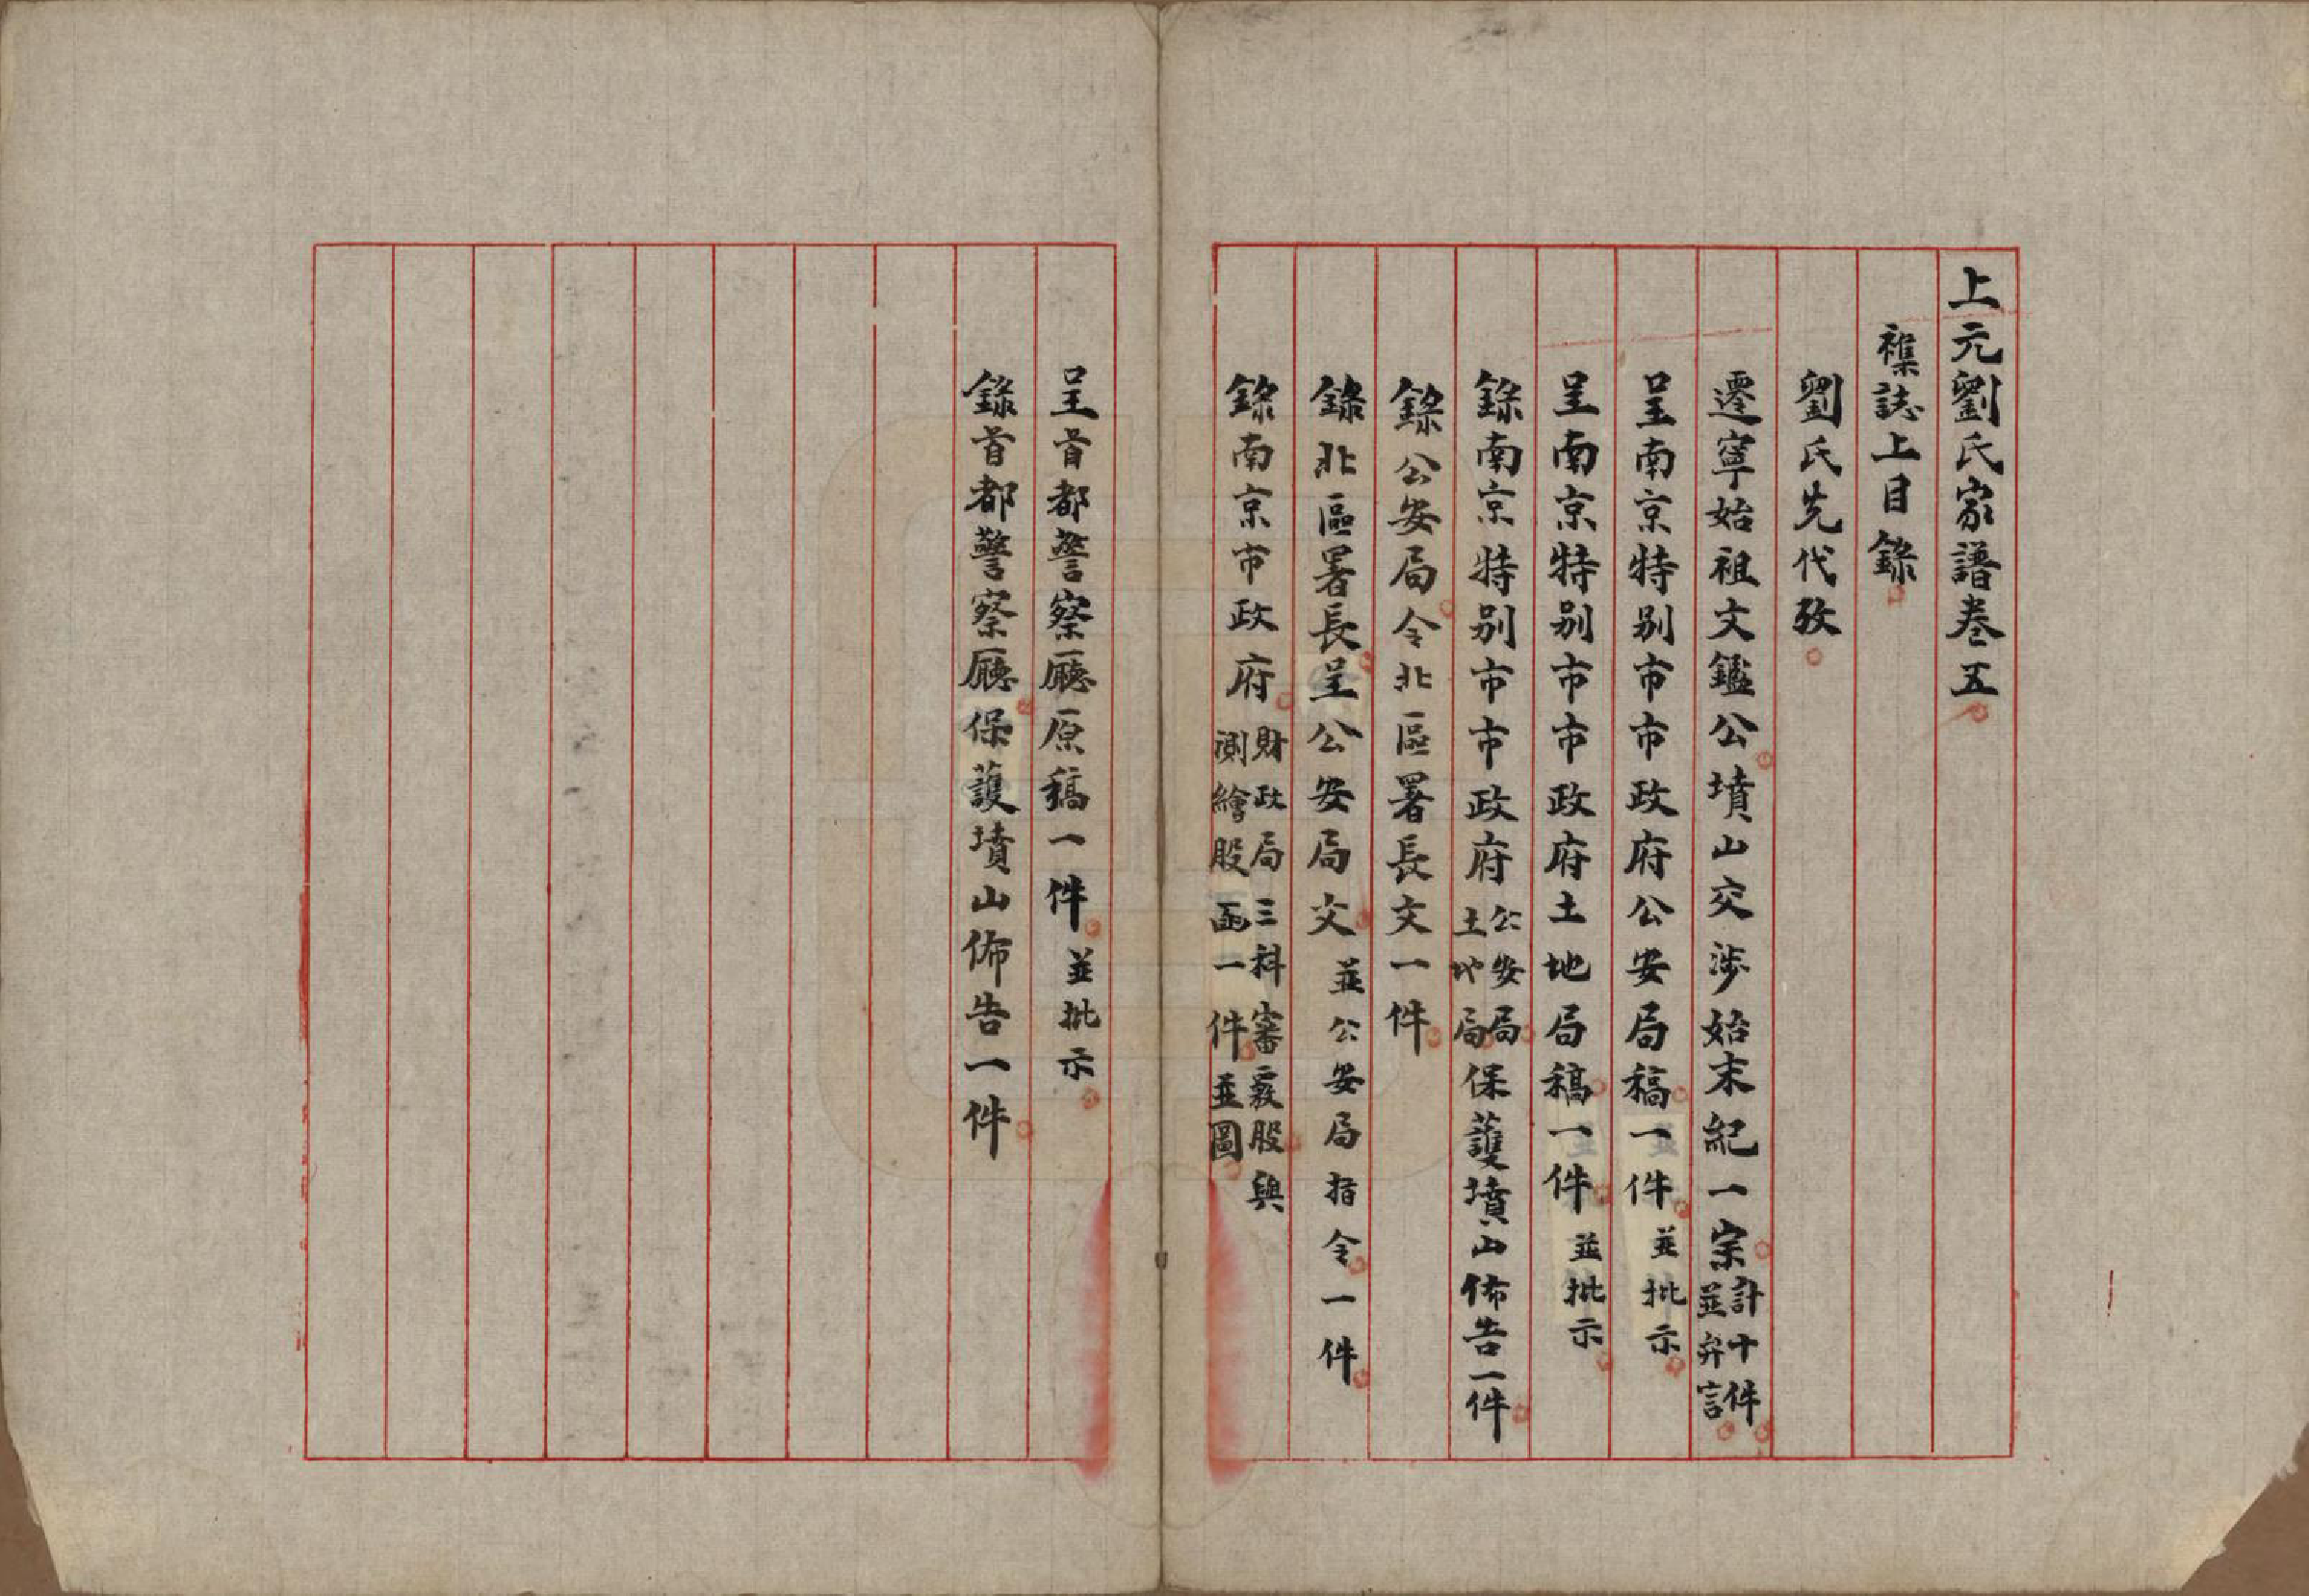 上元劉氏家譜卷五
襍誌上目錄
劉氏先代攷
遷寧始祖文鑑公墳山交涉始末紀一宗計十件並弁言
呈南京特别市市政府公安局稿一件並批示
呈南京特别市市政府土地局稿一件並批示
錄南京特别市市政府公安局土地局保護墳山佈告一件
錄公安局令北區署長文一件
錄北區署長呈公安局文並公安局指令一件
錄南京市政府財政局三科審覈股與測繪股函一件並圖
呈首都警察廳原稿一件並批示
錄首都警察廳保護墳山佈告一件